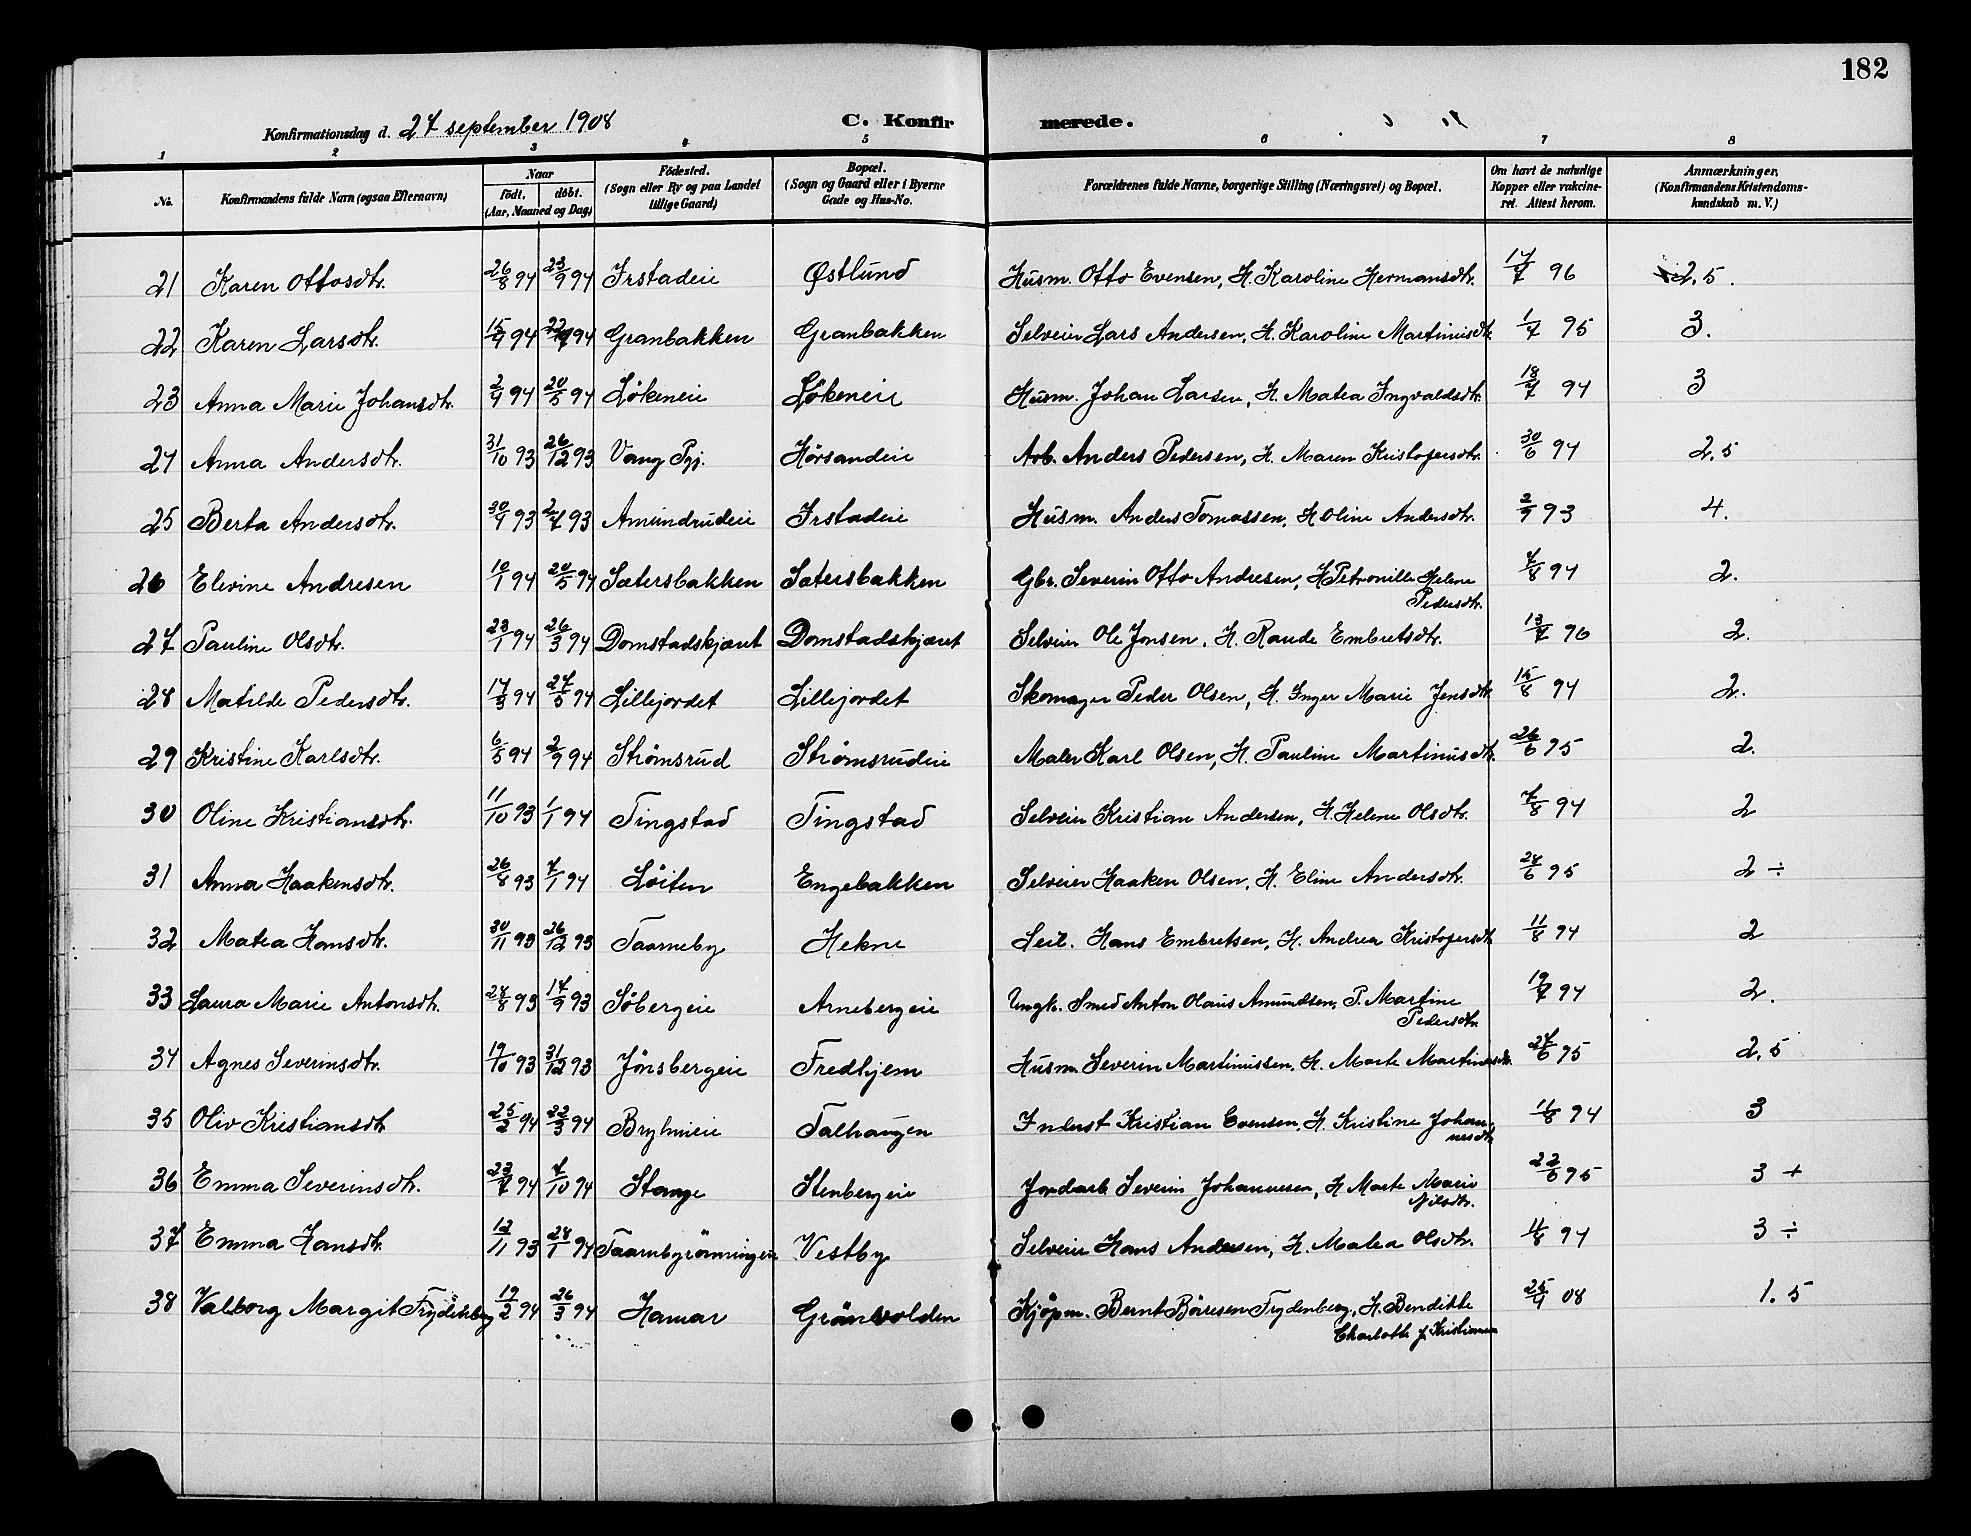 182
Konfirmationsdag d. 27 september 1908
C. Konfirmerede.
1 2 3 4 5 6 7 8
No.
Konfirmandens fulde Navn (ogsaa Efternavn)
Naar
født. døbt.
(Aar, Maaned og Dag)
Födested.
(Sogn eller By og paa Landet
tillige Gaard)
Bopæl.
(Sogn og Gaard eller i Byerne
Gade og Hus-No.
Forældrenes fulde Navne, borgerlige Stilling (Næringsvei) og Bopæl.
Om havt de naturlige
Kopper eller vakcine-
ret. Attest herom.
Anmærkninger,
(Konfirmandens Kristendoms-
kundskab m. V.)
21 Karen Ottosdtr. 26/8 94 23/9 94 Irstadeie Østlund Husm. Otto Evensen, H. Karoline Hermansdtr. 17/7 96 2,5.
22 Karen Larsdtr. 15/9 94 94 Granbakken Granbakken Selveier Lars Andersen, H. Karoline Martinusdtr. 1/7 95 3.
23 Anna Marie Johansdtr. 2/4 94 20/5 94 Lökeneie Lökeneie Husm. Johan Larsen, H. Matea Ingvaldsdtr. 18/7 94 3
24 Anna Andersdtr. 31/10 93 26/12 93 Vang Pgj. Hörsandeie Arb. Anders Pedersen, H. Maren Kristofersdtr. 30/6 94 2,5
25 Berta Andersdtr. 30/4 93 2/7 93 Amundrudeie Irstadeie Husm. Anders Tomassen, H Oline Andersdtr. 2/9 93 4.
26 Elevine Andresen 10/1 94 20/5 94 Sætersbakken Sætersbakken Gbr. Severin Otto Andresen, H Petronille Helene
Pedersdtr. 7/8 94 2.
27 Pauline Olsdtr. 23/1 94 26/3 94 Domstadskjæret Domstadskjæret Selveier Ole Jonsen, H. Rande Embretsdtr. 13/7 96 2.
28 Matilde Pedersdtr. 17/3 94 27/5 94 Lillejordet Lillejordet Skomager Peder Olsen, H. Inger Marie Jensdtr 15/8 94 2.
29 Kristine Karlsdtr. 6/5 94 2/9 94 Strömsrud Strömsrudeie Maler Karl Olsen, H. Pauline Martinusdtr. 26/6 95 2.
30 Oline Kristiansdtr. 11/10 93 1/1 94 Tingstad Tingstad Selveier Kristian Andersen, H. Helene Olsdtr. 7/8 94 2
31 Anna Haakensdtr. 26/8 93 7/1 94 Löiten Engebakken Selveier Haaken Olsen, H. Eline Andersdtr. 28/6 95 2 ÷
32 Matea Hansdtr. 30/11 93 26/12 93 Taarneby Hekne Leil. Hans Embretsen, H. Andrea Kristofersdtr 11/8 94 2
33 Laura Marie Antonsdtr. 24/8 93 17/9 93 Söbergeie Arnebergeie Ungk. Smed Anton Olaus Amundsen, P. Martine
Pedersdtr. 19/7 94 2.
34 Agnes Severinsdtr. 19/10 93 31/12 93 Jönsbergeie Fredhjem Husm. Severin Martinussen, H. Marte Martinusdtr. 27/6 95 2,5
35 Oliv Kristiansdtr 25/2 94 22/3 94 Bryhnieie Talhaugen Inderst Kristian Evensen, H. Kristine Johan-
nesdtr 11/8 94 3
36 Emma Severinsdtr. 94 7/10 94 Stange Stenbergeie Jordarb. Severin Johannesen, H Marte Marie
Nilsdtr. 22/6 95 3 +
37 Emma Hansdtr. 12/11 93 28/1 94 Taarnbyrönningen Vestby Selveier Hans Andersen, H. Matea Olsdtr. 11/8 94 3 ÷
38 Valborg Margit Frydenberg 19/2 94 26/3 94 Hamar Grönvolden Kjöpm. Bernt Böresen Frydenberg, H. Bendikte
Charlotte f. Kristiansen 25/4 08 1.5